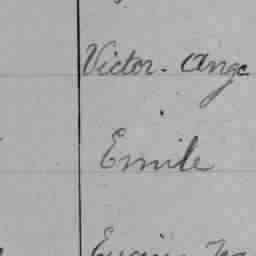 Victor. Ange
Emile